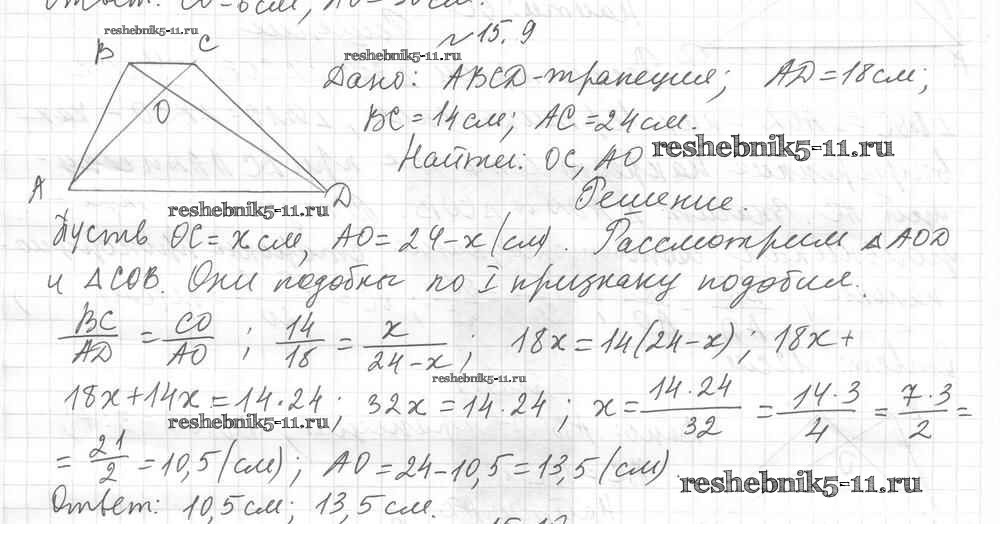 Ответ: CO-6см, AO-
reshebnik5-11.ru
№15.9
B C
reshebnik5-11.ru
Дано: ABCD-трапеция; AD=18см;
O
BC=14см; AC=24см.
Найти: OC, AO reshebnik5-11.ru
A D
Решение.
reshebnik5-11.ru
Пусть OC=x см, AO=24-x (см). Рассмотрим △AOD
и △COB. Они подобны по I признаку подобия.
BC/AD = CO/AO ; 14/18 = x/24-x ; 18x=14(24-x) ; 18x+
reshebnik5-11.ru
18x+14x=14·24; 32x=14·24 ; x= 14·24/32 = 14·3/4 = 7·3/2 =
reshebnik5-11.ru
= 21/2 =10,5(см); AO=24-10,5=13,5(см)
reshebnik5-11.ru
Ответ: 10,5см; 13,5см.